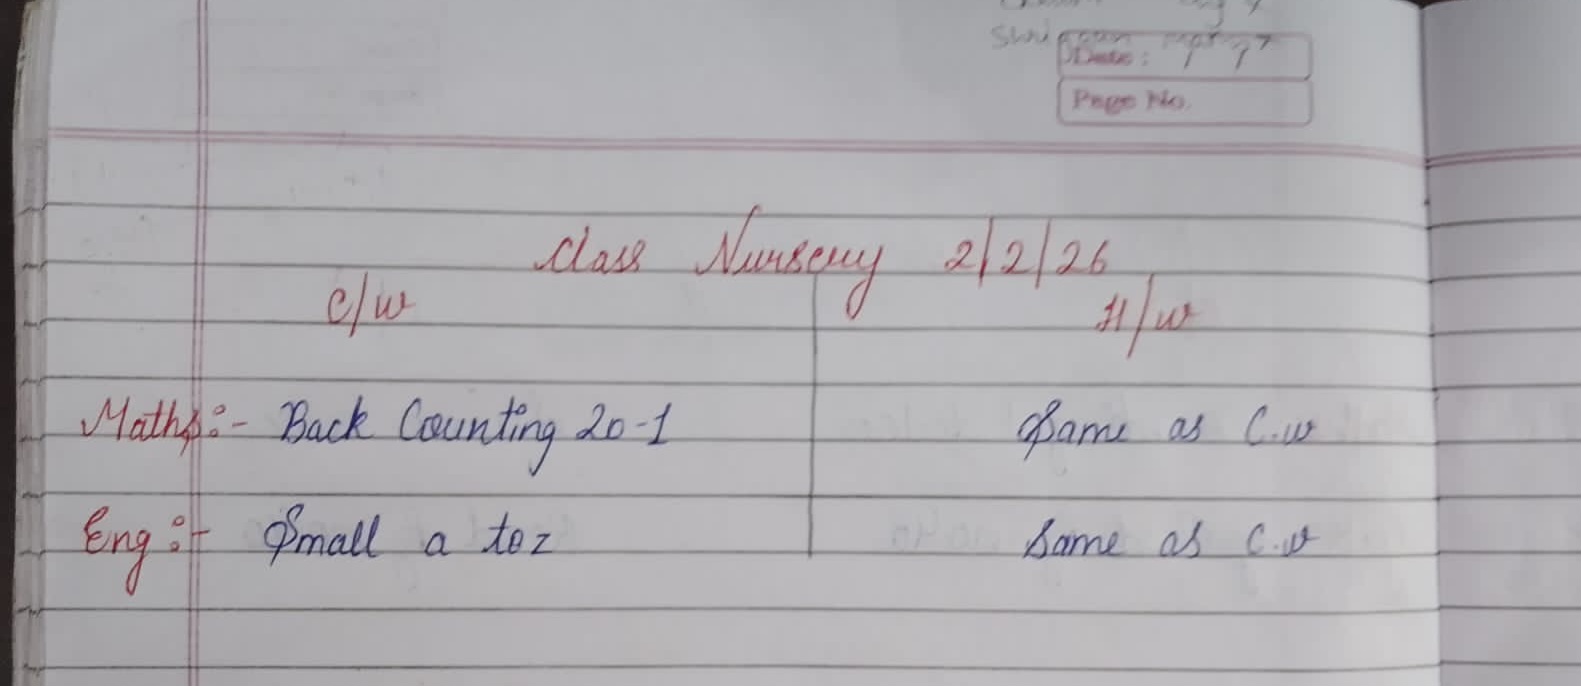 Date:
Page No.
Class Nursery 2/2/26
C/w H/w
Maths:- Back Counting 20-1 Same as C.w
Eng:- Small a to z Same as C.w